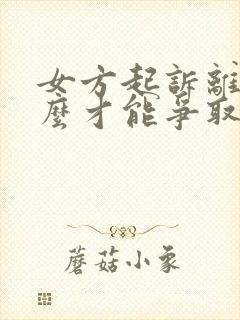 女方起訴離
麼才能爭取
蘑菇小象